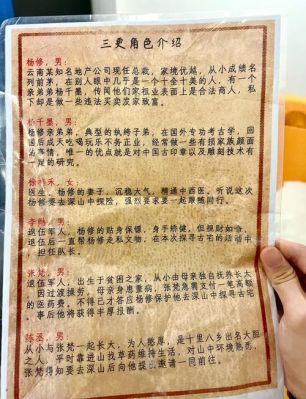 三更角色介绍
杨修，男：
云南某知名地产公司现任总裁，家境优越，从小成绩名
列前茅，在别人眼中几乎是一个十全十美的人，有一个
亲弟弟杨千墨，传闻他们家祖业表面上是合法商人，私
下却是做一些违法买卖发家致富。
杨千墨，男：
杨修亲弟弟，典型的纨绔子弟，在国外专功考古学，回
国后成天吃喝玩乐不务正业，经常做一些有损家族颜面
的事情，唯一的优点就是对中国古印章以及雕刻技术有
一定的研究。
女
医生，杨修的妻子，沉稳大气，精通中西医。听说这次
杨修要去深山中探险，强烈要求要一起跟随同行。
李 男：
退伍军人，杨修的贴身保镖，身手矫健，但视财如命，
退伍后一直帮杨修走私文物，在本次探寻古宅的活动中
担任队长。
张梵，男：
退伍军人，出生于贫困之家，从小由母亲独自抚养长大
，因过渡操劳，母亲身患重病，张梵急需支付一笔高额
的医药费。不得已才答应杨修保护他去深山中探寻古宅
，事后他将获得丰厚报酬。
陈丞，男：
从小与张梵一起长大，为人憨厚，是十里八乡出名大胆
之人，平时靠进山找草药维持生活，对山中环境熟悉，
张梵得知要去深山后向他提 邀请一同前往。